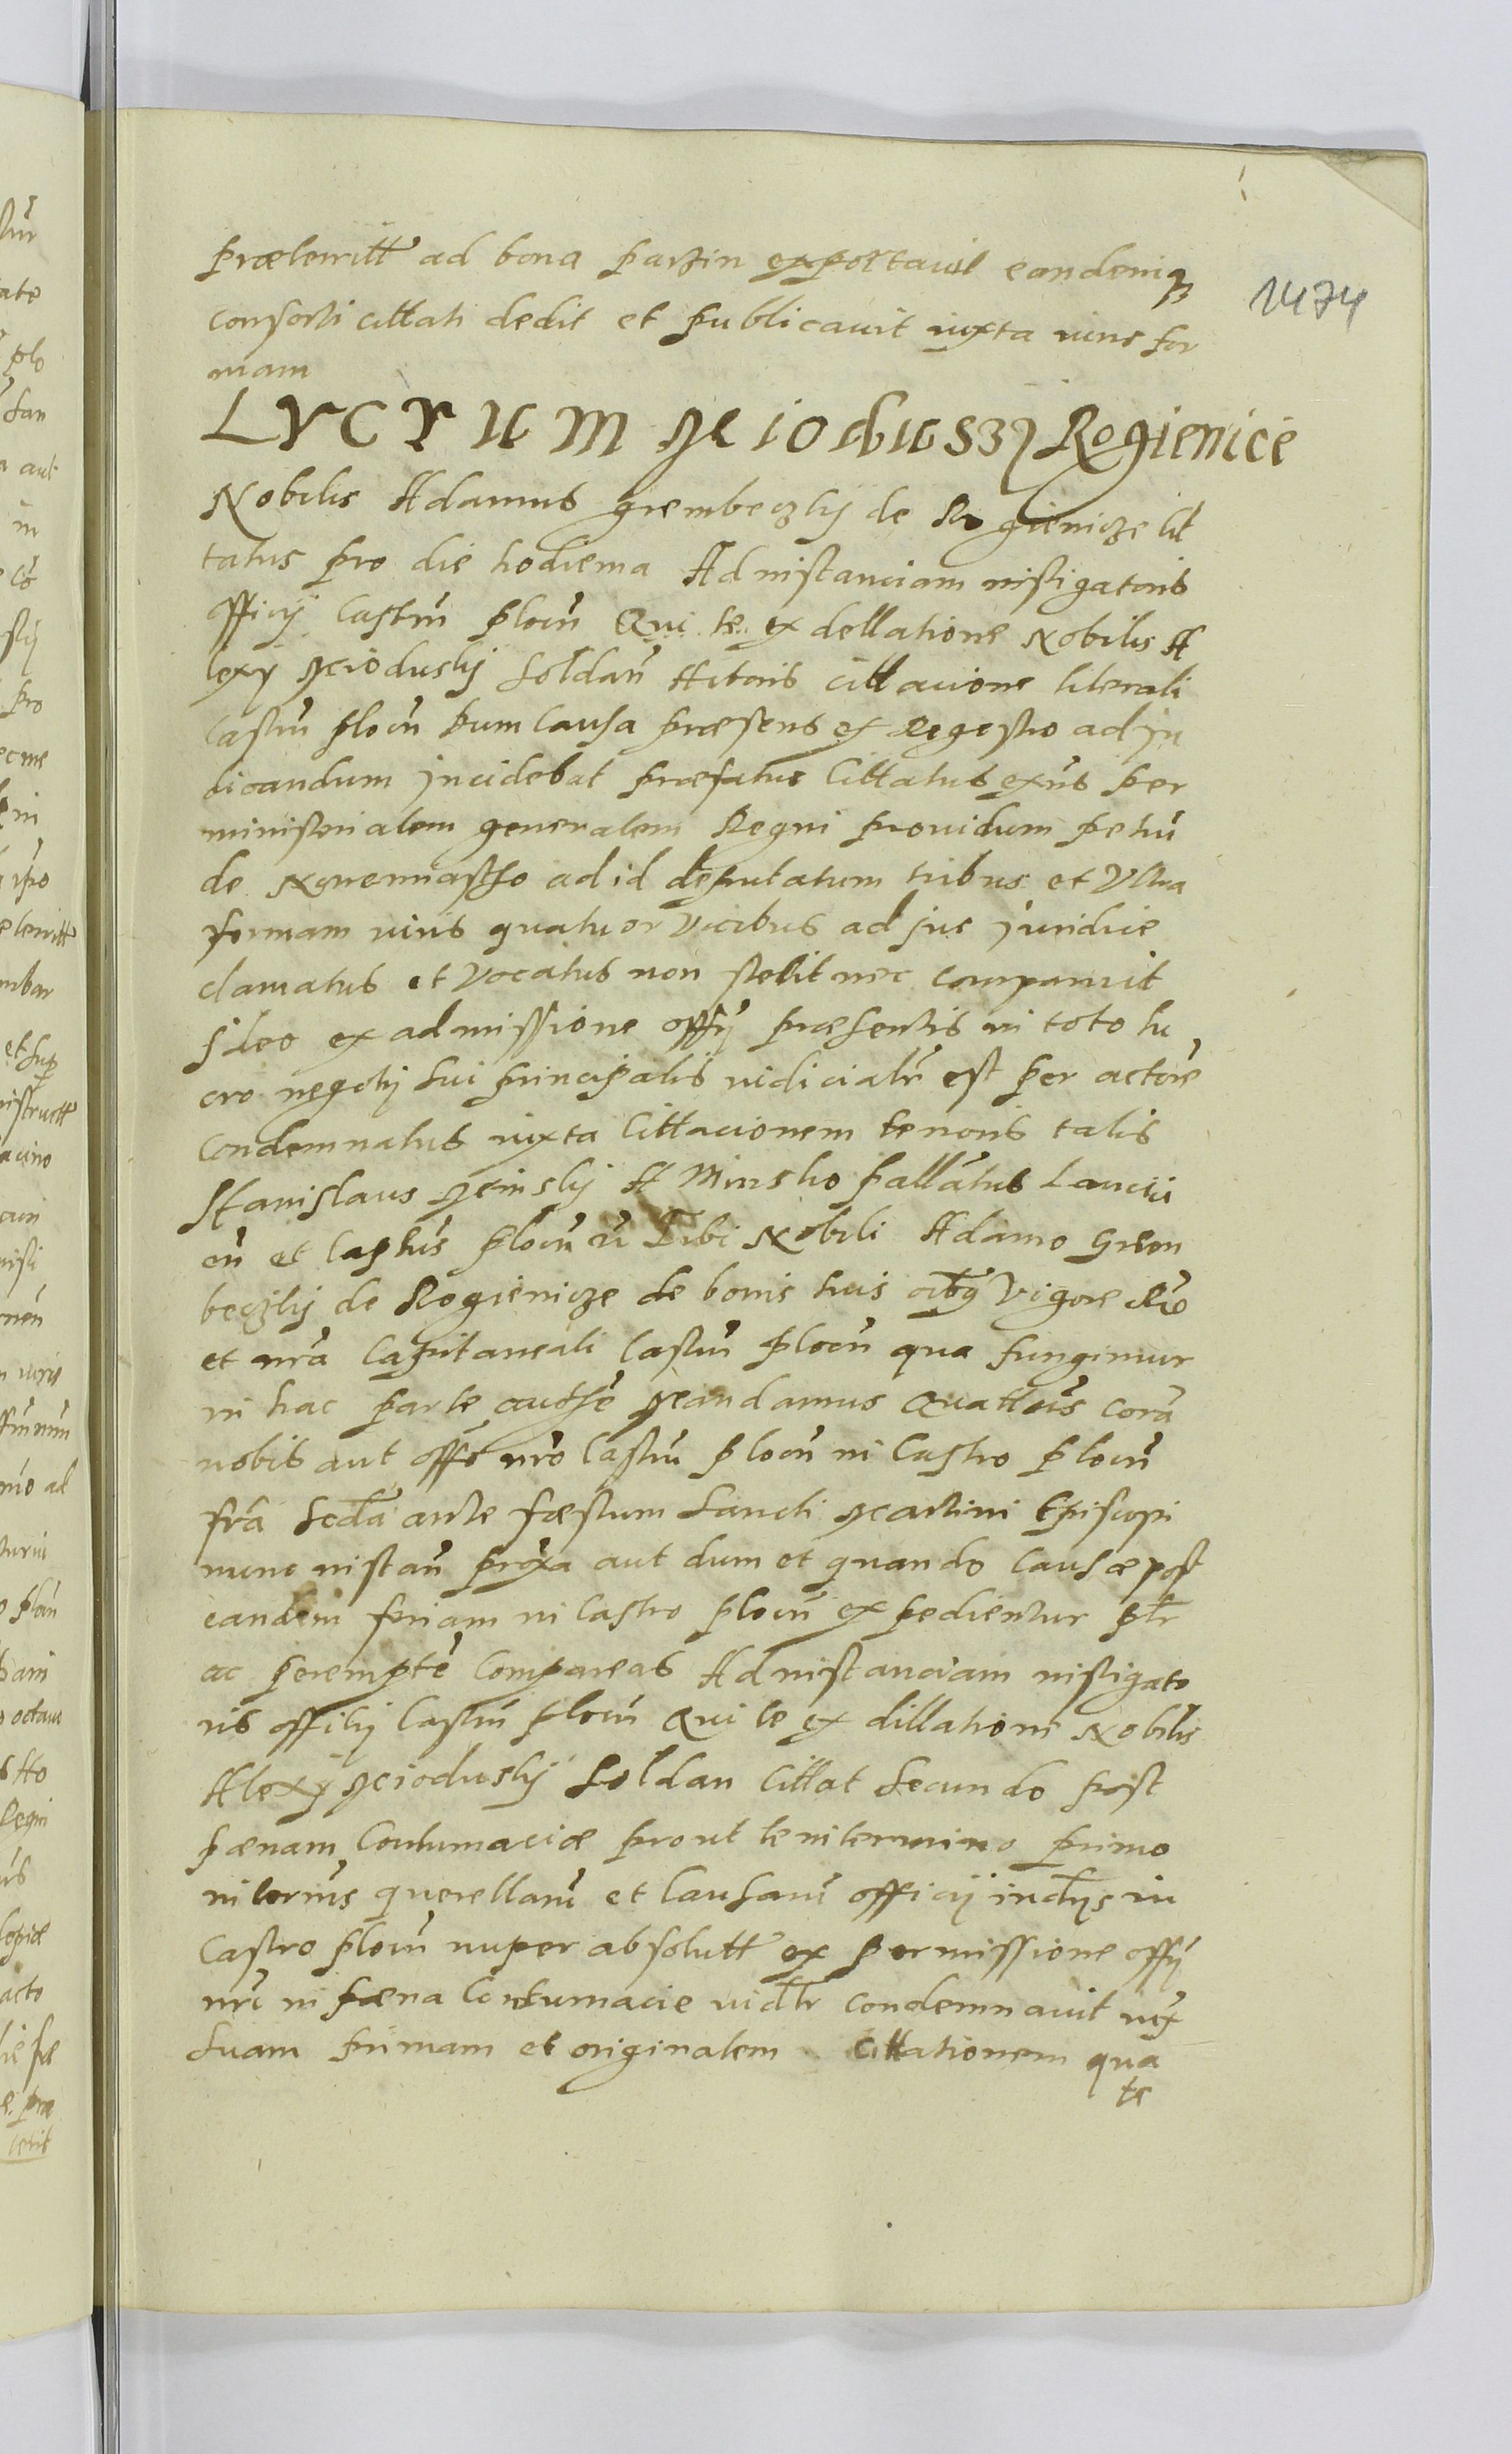 præteritt ad bona partin exportavit eandemqz
consorti cittati dedit et publicavit iuxta iuris for
mam
1474
LVCRUM Mioduszy Rogienice
Nobilis Adamus grembeczky de Rogienicze Cit
tatus pro die hodierna Ad instanciam instigatoris
officij Castrn plocn Qui te ex dellatione Nobilis A
lexy Miodusky Soldan Actoris cittacione literali
Castrn plocn Dum Causa præsens ex Regestro ad ju
dicandum jncidebat præfatus Cittatus exns per
ministerialem generalem Regni providum petrū
de ad id deputatum tribus et Vltra
formam iuris quatuor Vicibus ad jus juridice
clamatus et Vocatus non stetit nec comparuit
Ideo ex admissione offy præsentis in toto lu
cro negotij sui principalis iudicialr est per actore
condemnatus iuxta Cittacionem tenoris talis
Stanislaus Minsky A Minsko pallatus Lancici
en et Captus plocn Tibi Nobili Adamo Grem
beczky de Rogienicze de bonis tuis oibg Vigore Re
et nra Capitaneali Castrn plocn qua fungimur
in hac parte aucthe Mandamus Quattus cora
nobis aut offo nro Castrn plocn in Castro plocn
fra scda ante fæstum Sancti Martini Episcopi
nunc instan proxa aut dum et quando Causæ post
eandem feriam in Castro plocn expedientur ptr
ac perempte Compareas Ad instanciam instigato
ris officij Castrn plocn Qui te ex dillatione Nobilis
Alexy Miodusky Soldan Cittat secundo post
pænam Contumaciæ prout te in termino primo
in termis querellaru et Causaru officij indys in
Castro plocn nuper absolutt ex permissione offy
nri in pæna Contumacie iudlr condemnavit iux
suam primam et originalem Cittationem qua
te